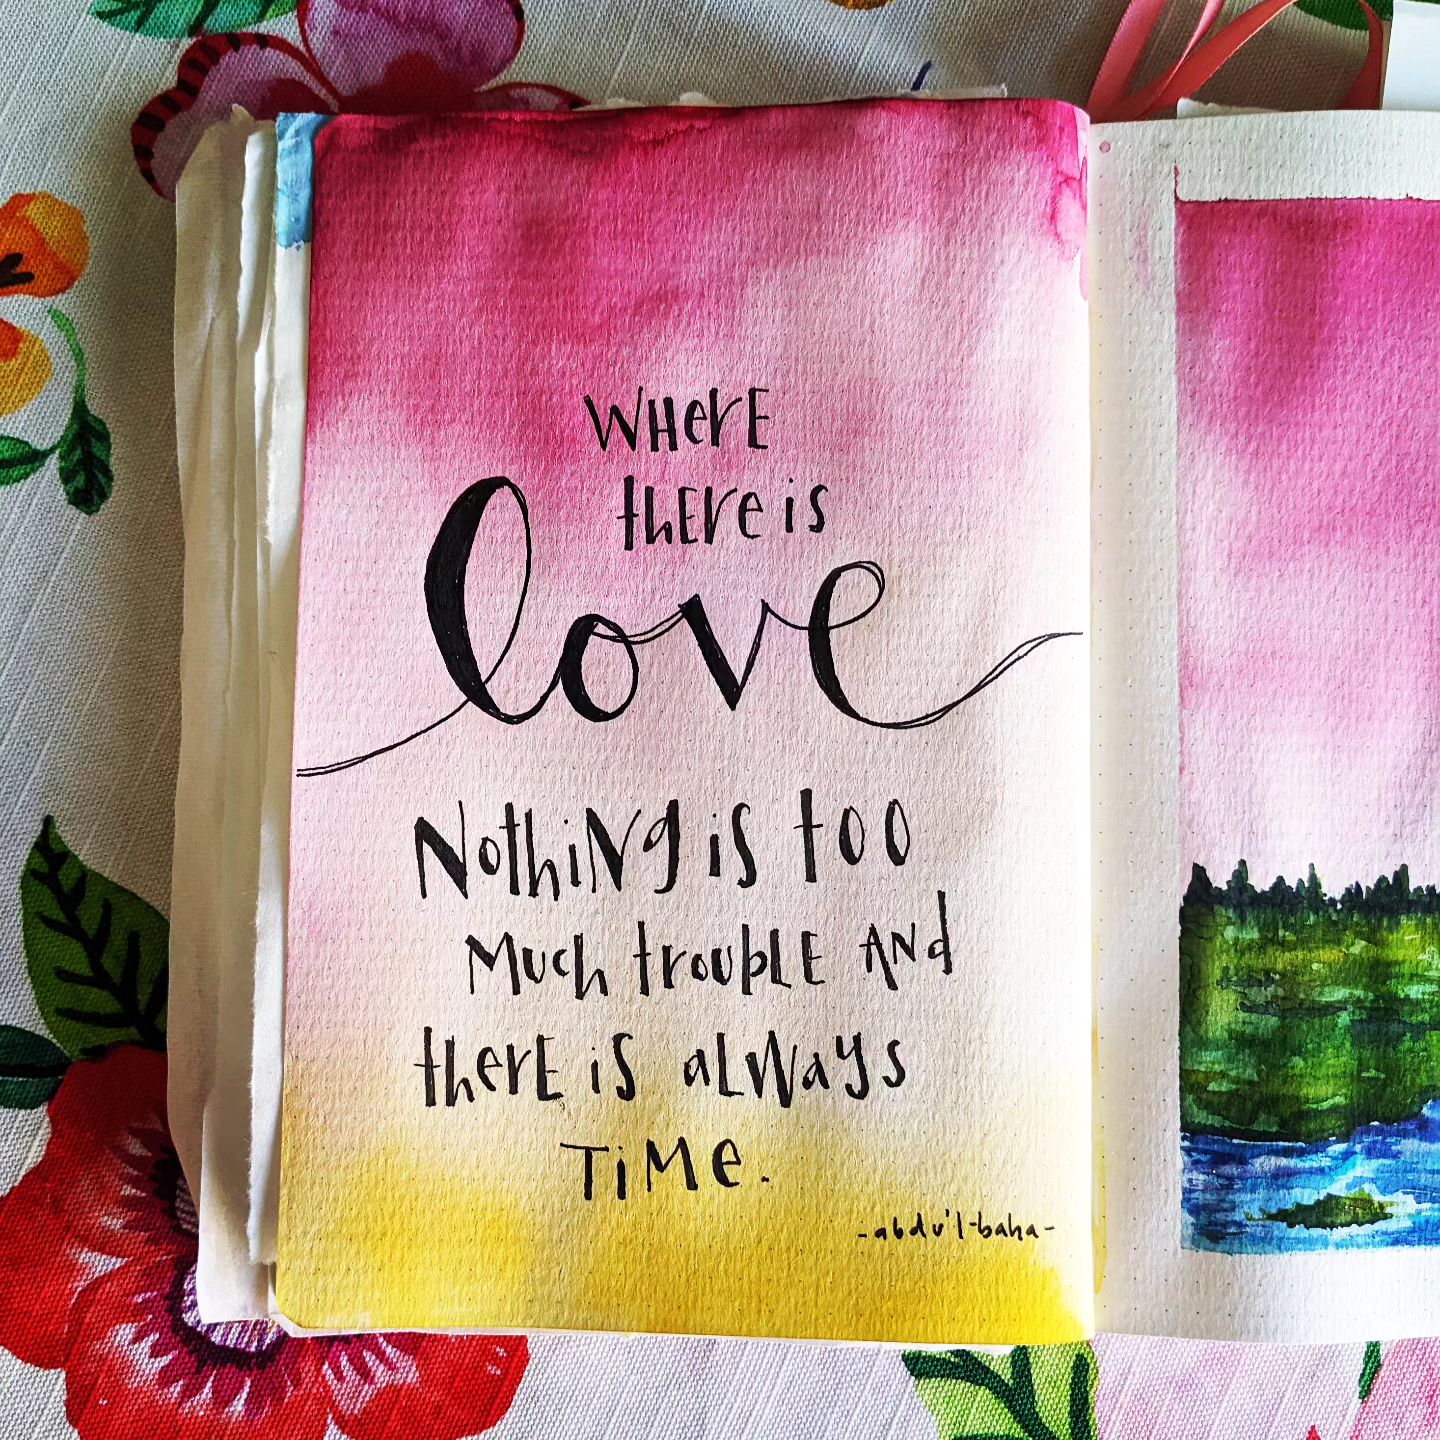 WHerE
thEre is
love
NothiNg is too
Much troubLE ANd
therE is aLWays
TiMe.
-abdu'l-baha-